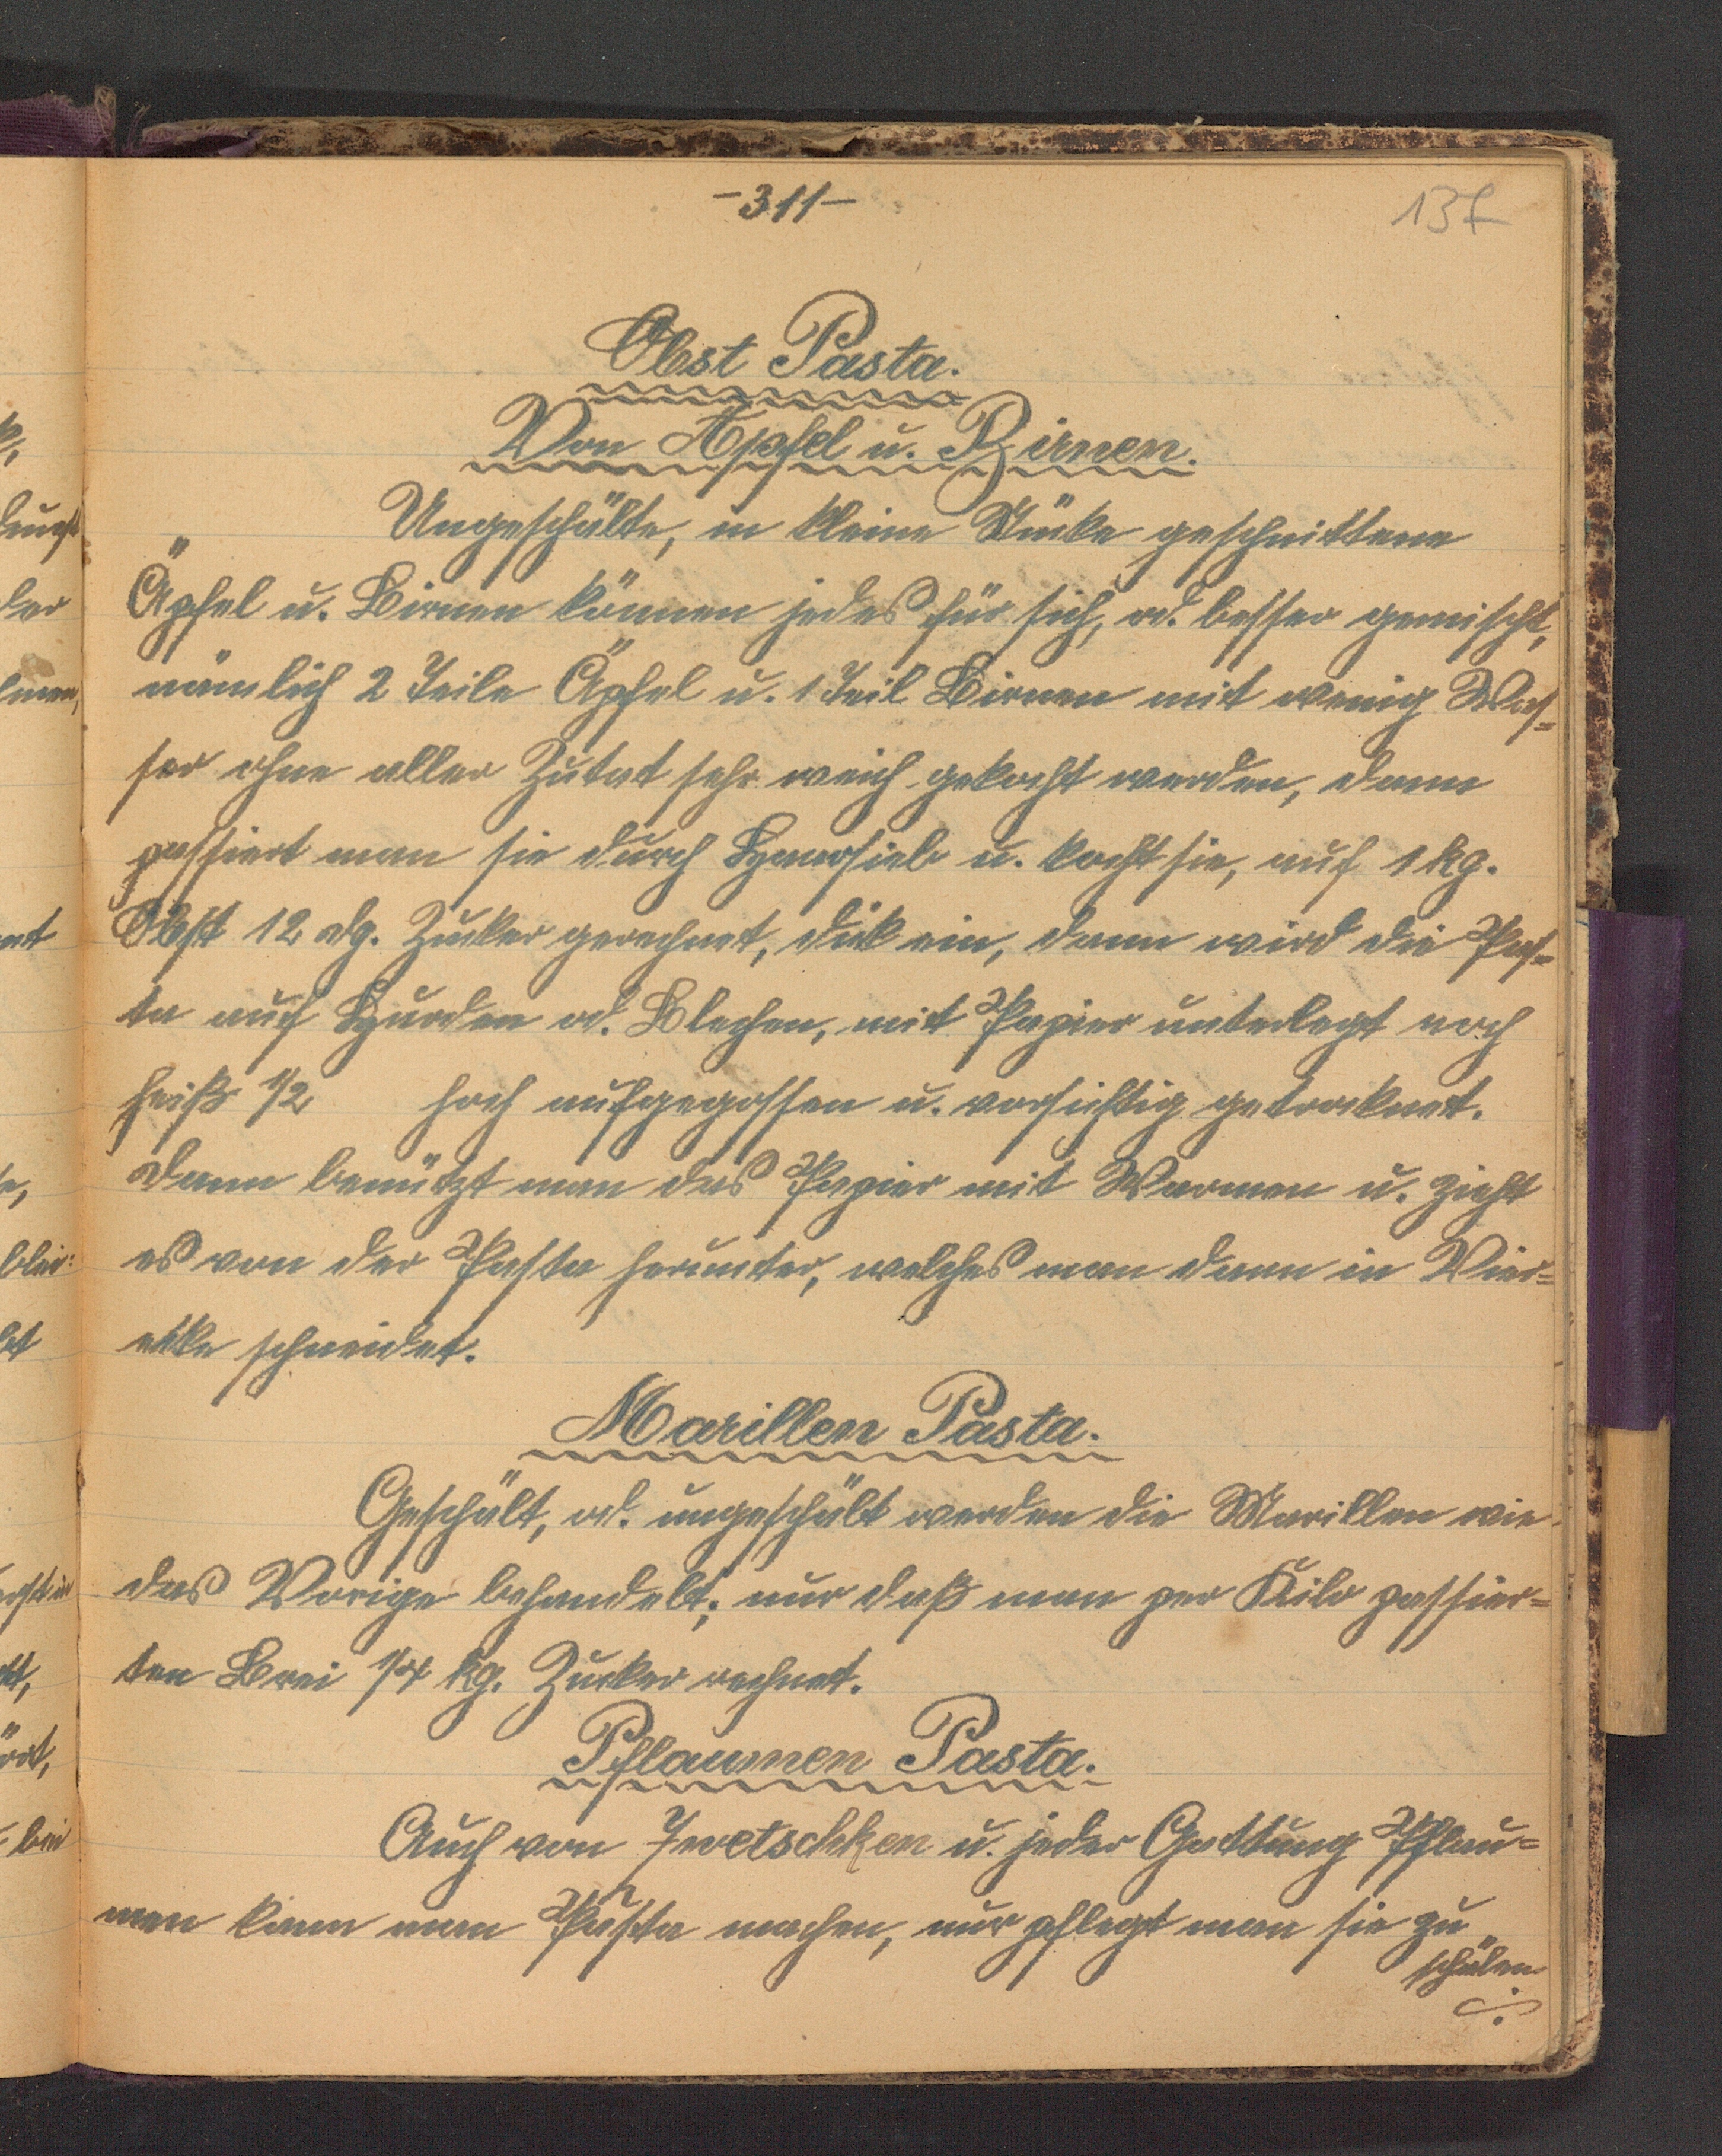 -311-
137
Obst Pasta.
Von Äpfel u. Birnen.
Ungeschälte, in kleine Stücke geschnittene
Äpfel u. Birnen können jedes für sich, od. besser gemischt,
nämlich 2 Teile Äpfel u. 1 Teil Birnen mit wenig Was=
ser ohne aller Zutat sehr weich gekocht werden, dann
passiert man sie durch Haarsieb u. kocht sie, auf 1 kg.
Obst 12 dg. Zucker gerechnet, dick ein, dann wird die Pas=
ta auf Hurden od. Blechen, mit Papier unterlegt noch
heiß 1/2 hoch aufgegossen u. vorsichtig getrocknet.
Dann benützt man das Papier mit Warmen u. zieht
es von der Pasta herunter, welches man dann in Vier=
ecke schneidet.
Marillen Pasta.
Geschält, od. ungeschält werden die Marillen wie
das Vorige behandelt; nur daß man per Kilo passier=
ten Brei 1/4 kg. Zucker rechnet.
Pflaumen Pasta.
Auch von Zwetschken u. jeder Gattung Pflau=
men kann man Pasta machen, nur pflegt man sie zu
schälen